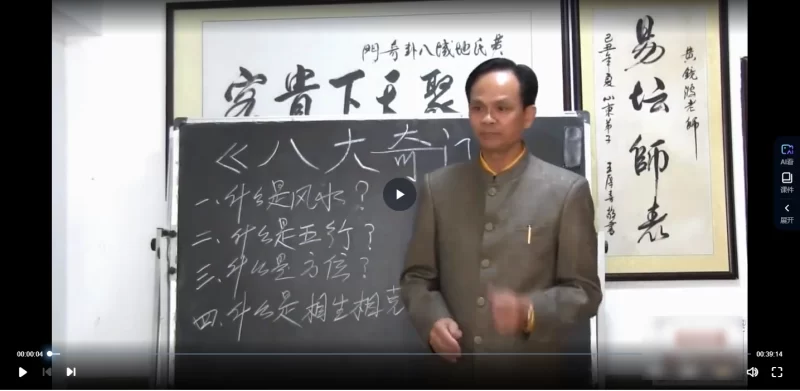 黄氏地域八卦奇門
聚天下貴客
老師
易坛師表
己丑年夏 山東弟子
《八大奇门
一、什么是风水？
二、什么是五行？
三、什么是方位？
四、什么是相生相克
AI看
课件
展开
00:00:04
00:39:14